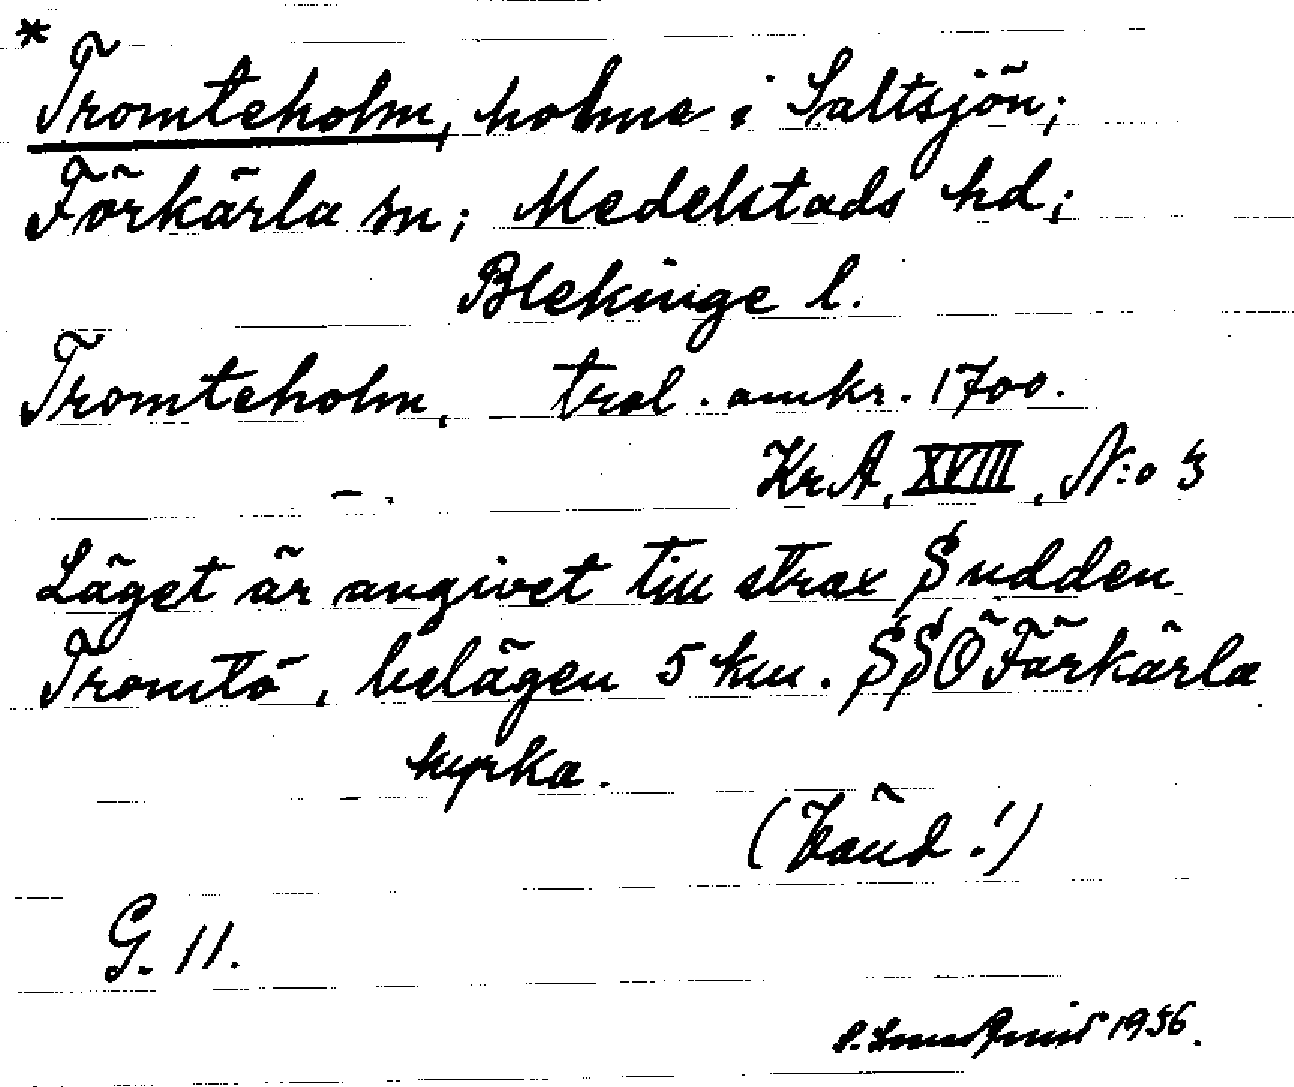 * Tromteholm, holme i Saltsjön;
Förkärla sn; Medelstads hd;
Blekinge l.
Tromteholm, trol. omkr. 1700.
KrA, XVIII, N:o 3
Läget är angivet till strax S udden
Tromtö, belägen 5 km. SSÖ Förkärla
kyrka.
(Vänd!)
G. 11.
1936.